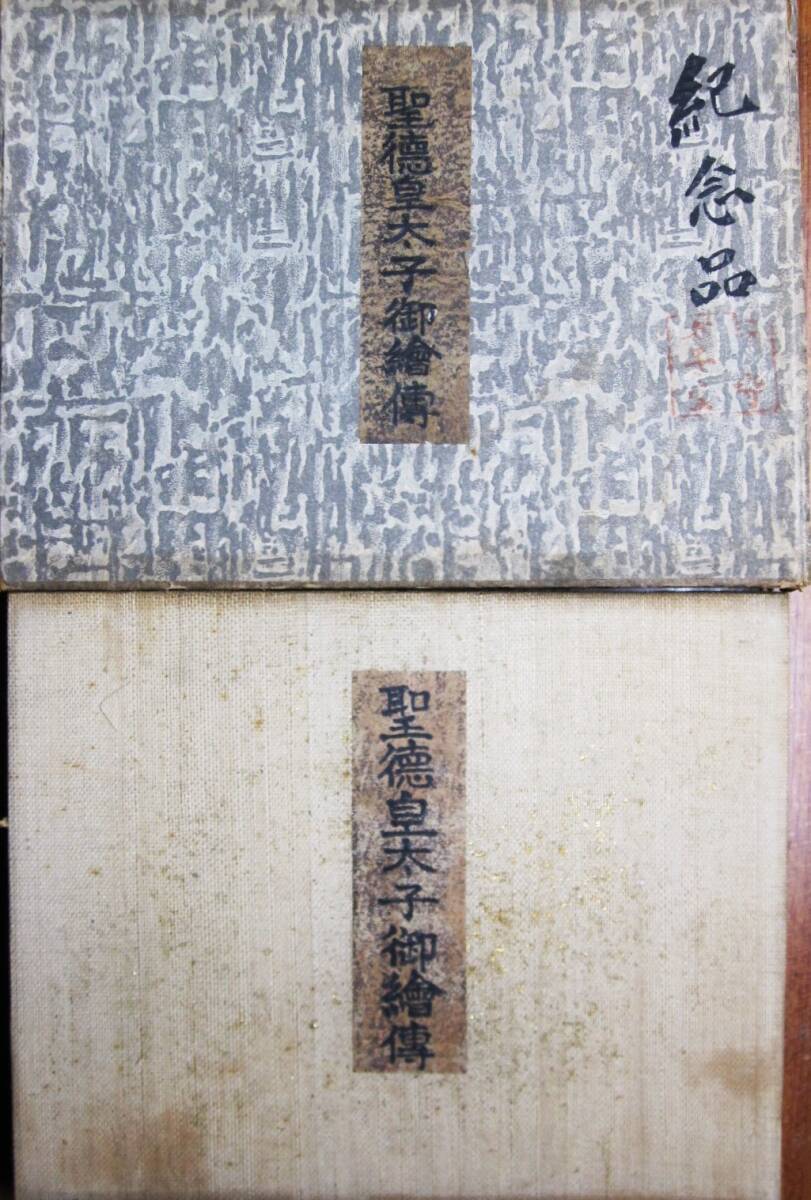 紀念品
聖德皇太子御繪傳
聖德皇太子御繪傳